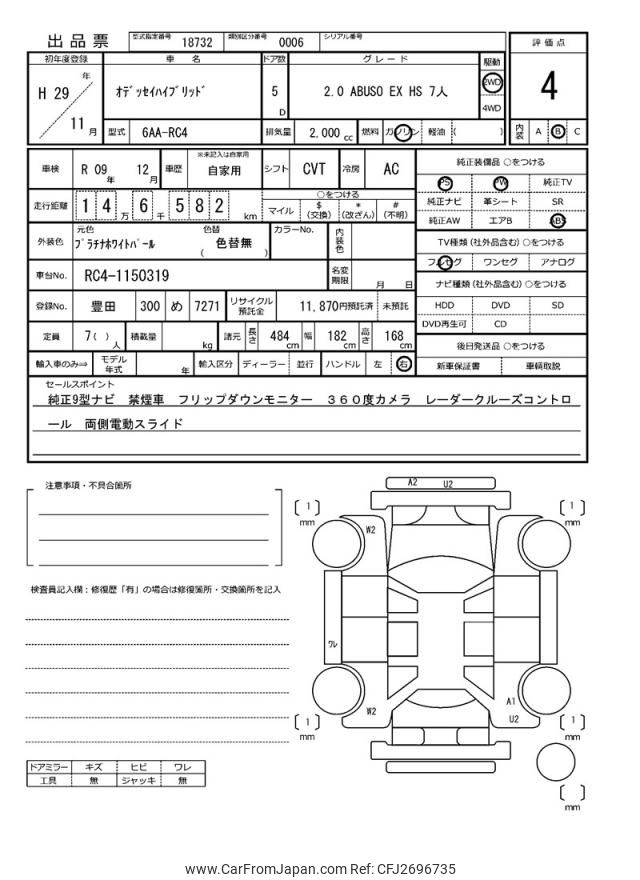 出品票 型式指定番号 18732 類別区分番号 0006 シリアル番号
初年度登録 車名 ドア数 グレード 駆動 評価点
H 29 年 11 月 ｵﾃﾞｯｾｲﾊｲﾌﾞﾘｯﾄﾞ 5 D 2.0 ABUSO EX HS 7人 2WD 4WD 4
型式 6AA-RC4 排気量 2,000 cc 燃料 ガソリン 軽油 ( ) 内装 A B C
車検 R 09 年 12 月 車歴 ※未記入は自家用 自家用 シフト CVT 冷房 AC
走行距離 1 4 万 6 千 5 8 2 km ○をつける マイル $ (交換) * (改ざん) # (不明)
外装色 元色 ﾌﾟﾗﾁﾅﾎﾜｲﾄﾊﾟｰﾙ 色替 ( 色替無 ) カラーNo. 内装色
車台No. RC4-1150319 名変期限 月 日
登録No. 豊田 300 め 7271 リサイクル預託金 11,870円預託済 未預託
定員 7( ) 人 積載量 kg 諸元 長さ 484 cm 幅 182 cm 高さ 168 cm
輸入車のみ⇒ モデル年式 年 輸入区分 ディーラー 並行 ハンドル 左 右
純正装備品 ○をつける
PS PW 純正TV
純正ナビ 革シート SR
純正AW エアB ABS
TV種類 (社外品含む) ○をつける
フルセグ ワンセグ アナログ
ナビ種類 (社外品含む) ○をつける
HDD DVD SD
DVD再生可 CD
後日発送品 ○をつける
新車保証書 車輌取説
セールスポイント
純正9型ナビ 禁煙車 フリップダウンモニター 360度カメラ レーダークルーズコントロ
ール 両側電動スライド
注意事項・不具合箇所
検査員記入欄：修復歴「有」の場合は修復箇所・交換箇所を記入
ドアミラー キズ ヒビ ワレ
工具 無 ジャッキ 無
A2 U2
1 mm 1 mm
W2
ワレ
W2 A1
U2
1 mm 1 mm
mm
www.CarFromJapan.com Ref: CFJ2696735